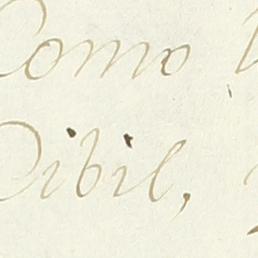 Como
Dibil,